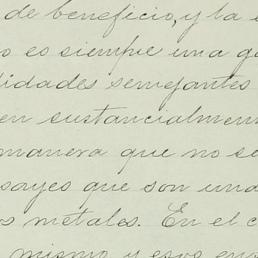 de beneficio, y la
o es siempre una g
lidades semejantes
en sustancialmen
manera que no se
sayes que son una
os metales. En el c
mismo y esos ens